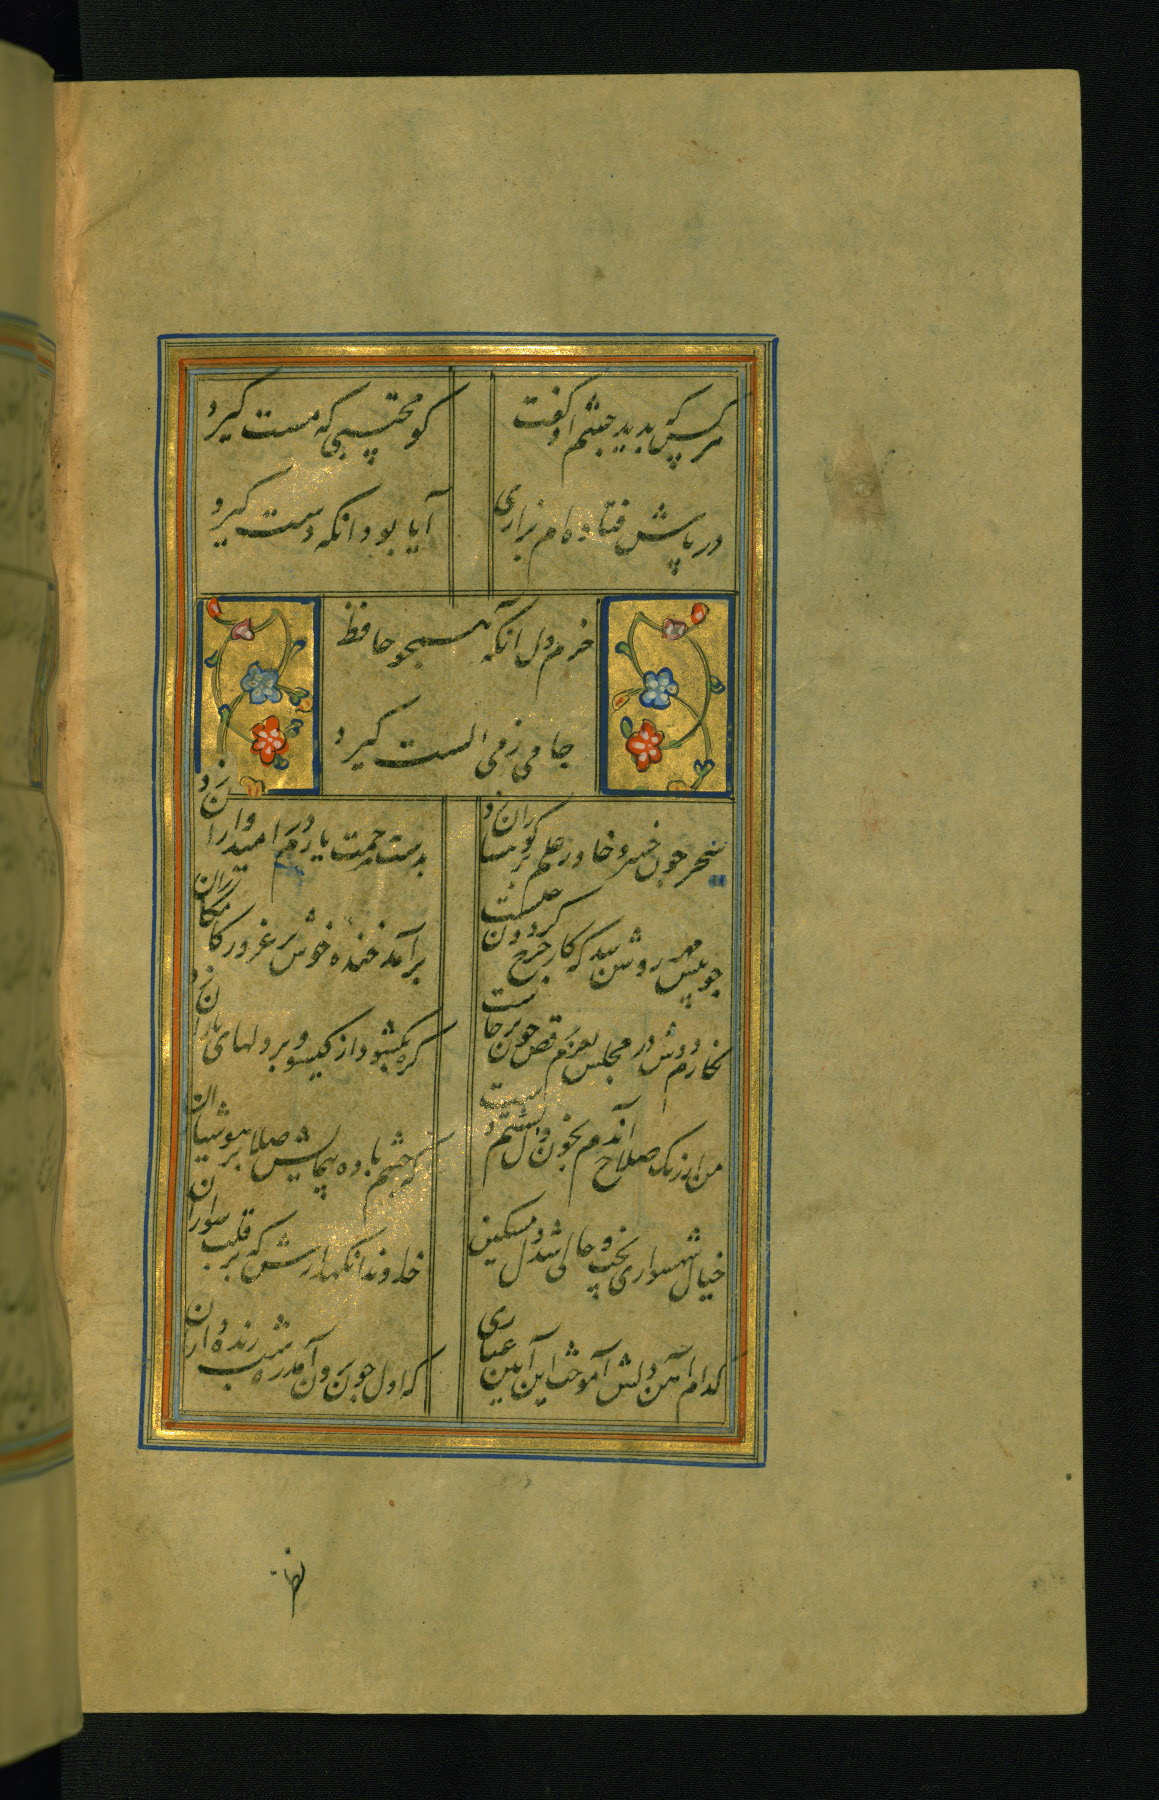 هر کس که بدید چشم او گفت
کو محتسبی که مست گیرد
در پاش فتاده ام بزاری
آیا بود انکه دست گیرد
خرم دل انکه همچو حافظ
جامی ز می الست گیرد
سحر چون خسرو خاور علم بر کوهساران زد
بدست مرحمت یارم در امیدواران زد
چو پیش مهر روشن شد که کار چرخ کردون چیست
برآمد خنده خوش بر غرور کامکاران زد
نکارم دوش در مجلس بعزم رقص چون برخاست
کره بکشود از کیسو و بر دلهای یاران زد
من از رنک صلاح آندم بخون دل بشستم دست
که چشم باده پیمایش صلا بر هوشیاران زد
خیال شهسواری پخت و حالی شد دل مسکین
خداوندا نکهدارش که بر قلب سواران زد
کدام آهن دلش آموخت این آیین عیاری
که اول چون برون آمد ره شب زنده داران زد